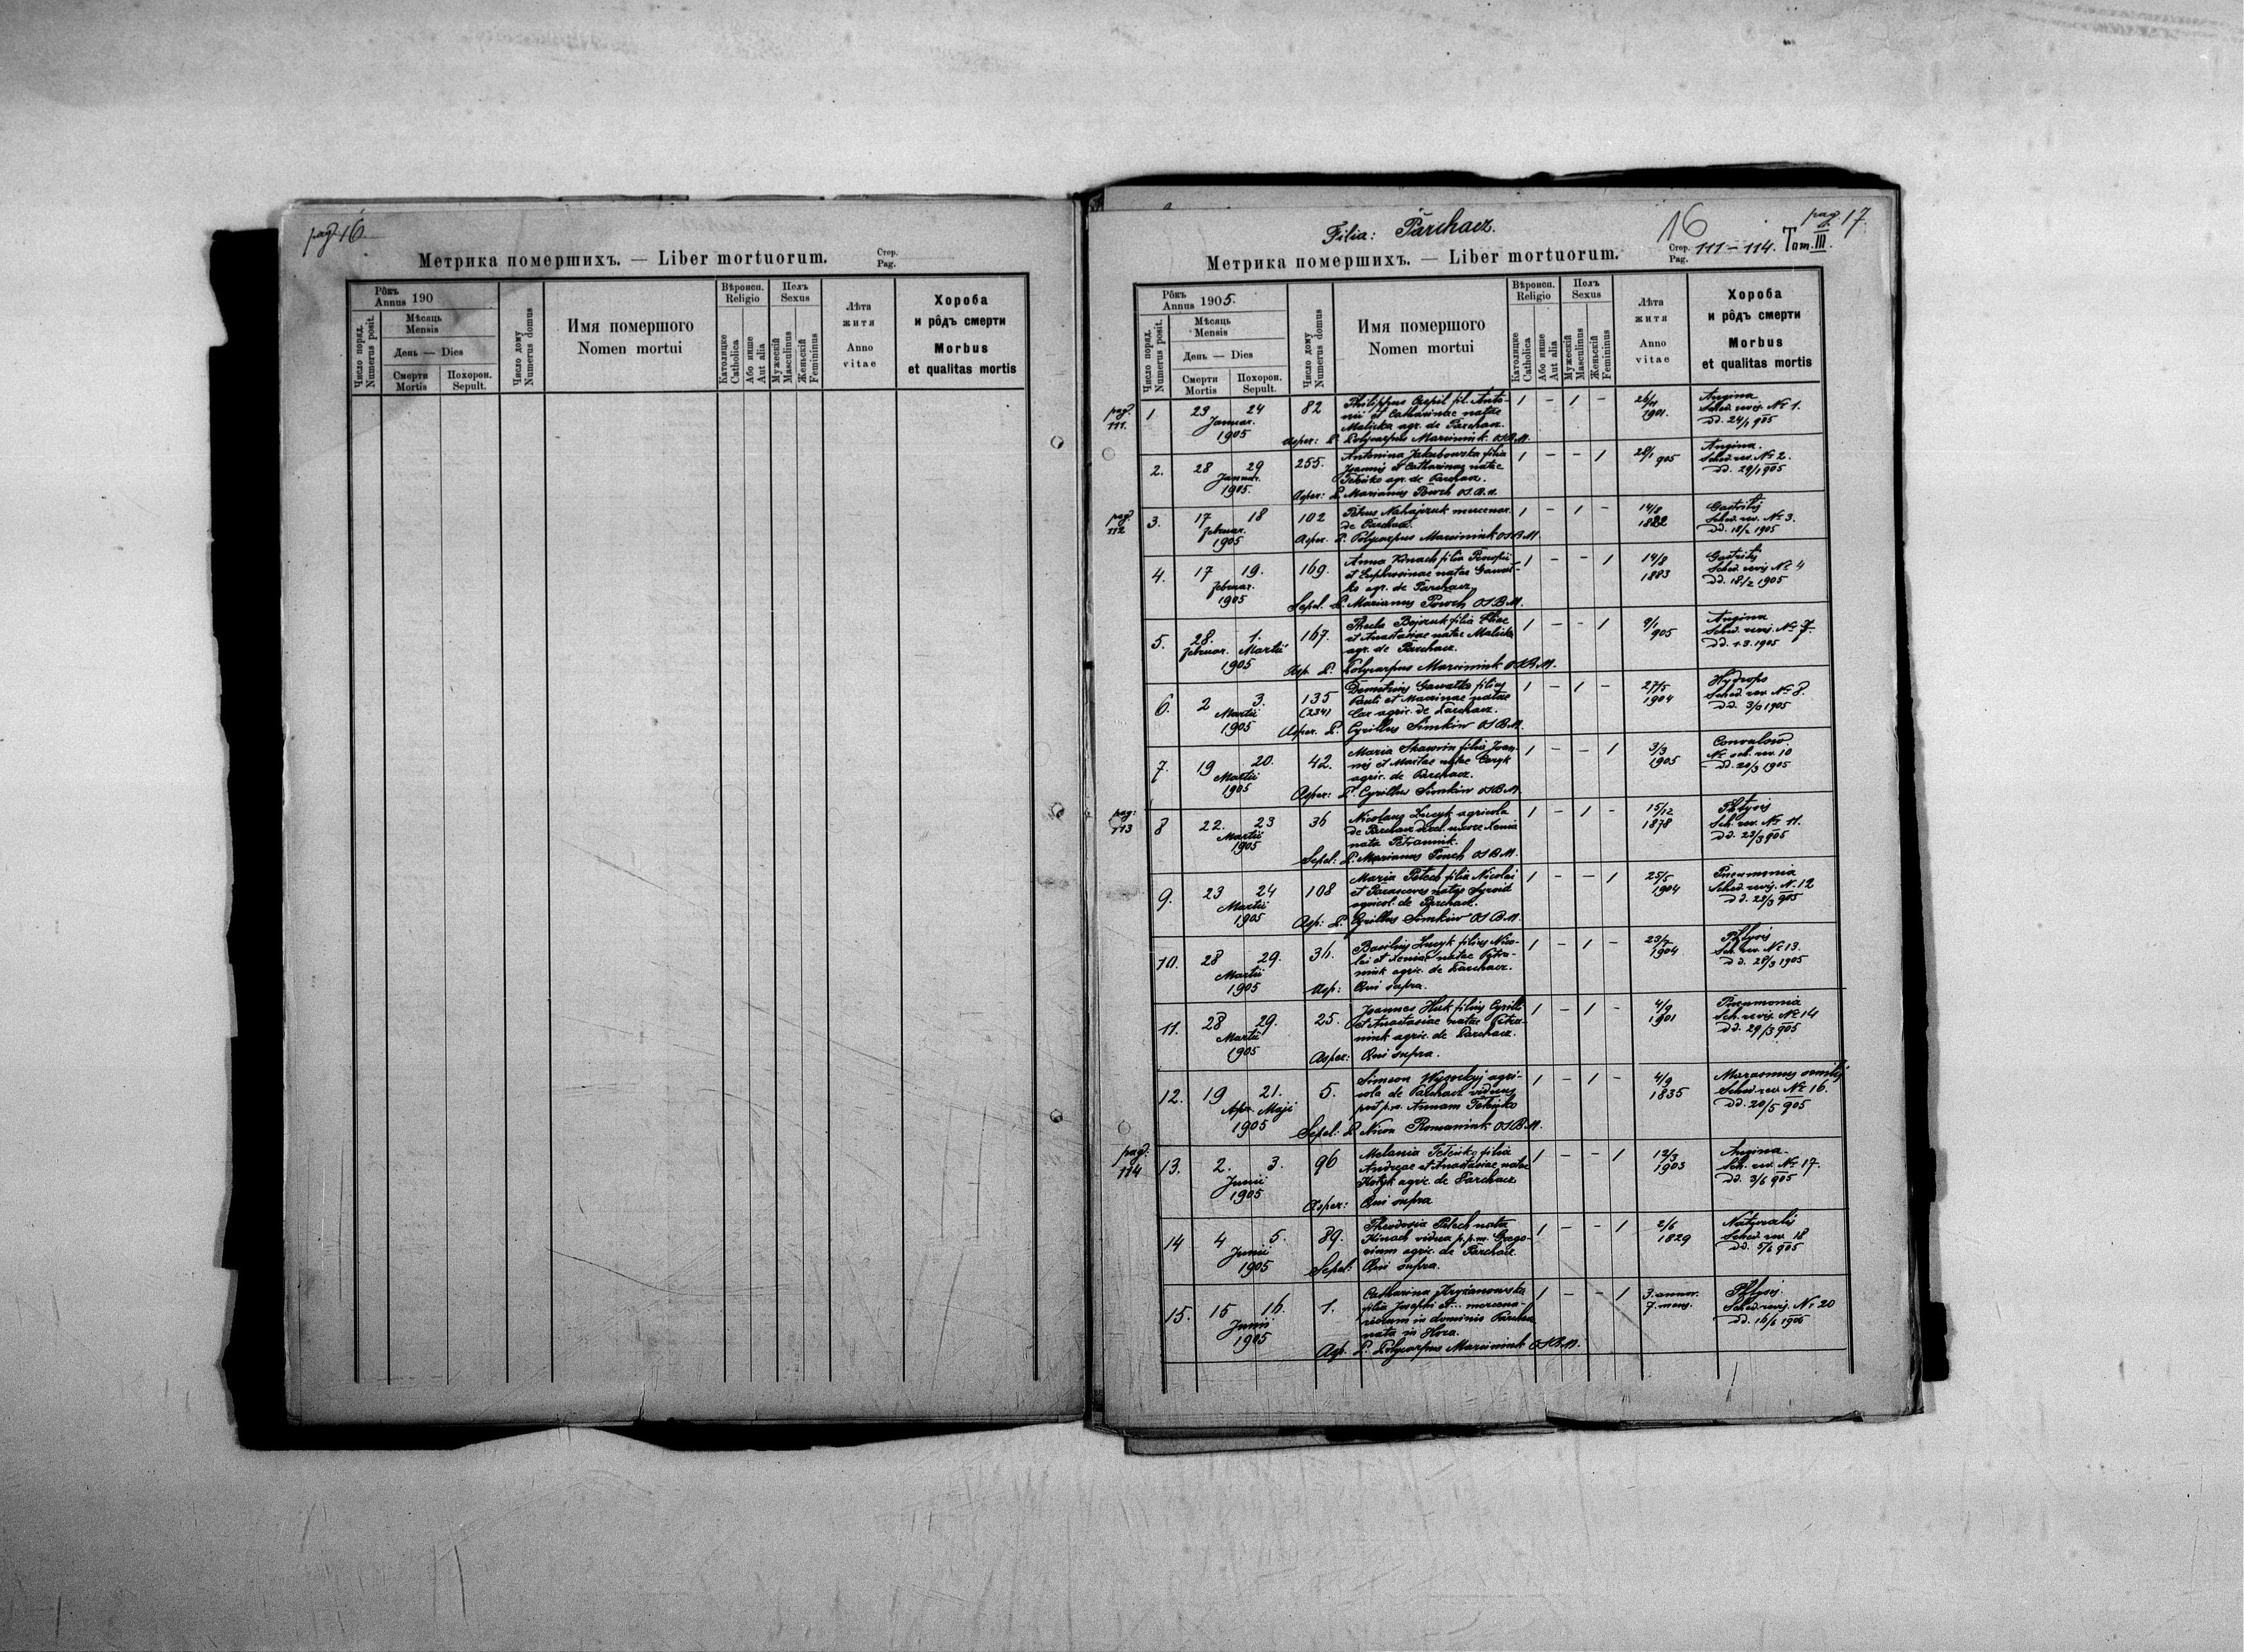 pag. 16
Метрика помершихъ. — Liber mortuorum.
Стор.
Pag.
Рôкъ
Annus 190
Мѣсяць
Mensis
День — Dies
Число поряд.
Numerus posit.
Смерти
Mortis
Похорон.
Sepult.
Число дому
Numerus domus
Имя помершого
Nomen mortui
Вѣроисп.
Religio
Католицке
Catholica
Або инше
Aut alia
Полъ
Sexus
Мужескій
Masculinus
Женьскій
Femininus
Лѣта
житя
Anno
vitae
Хороба
и рôдъ смерти
Morbus
et qualitas mortis
Filia: Parchacz.
16
pag. 17.
Метрика помершихъ. — Liber mortuorum.
Стор.
Pag. 111–114. Tom. III.
Рôкъ
Annus 1905.
Мѣсяць
Mensis
День — Dies
Число поряд.
Numerus posit.
Смерти
Mortis
Похорон.
Sepult.
Число дому
Numerus domus
Имя помершого
Nomen mortui
Вѣроисп.
Religio
Католицке
Catholica
Або инше
Aut alia
Полъ
Sexus
Мужескій
Masculinus
Женьскій
Femininus
Лѣта
житя
Anno
vitae
Хороба
и рôдъ смерти
Morbus
et qualitas mortis
pag. 111.
1 23 24 Januar. 1905 82
Philippus fil. Anto-
nii et Catharinae natae
Malicka agr. de Parchacz.
Asper: P. Polycarpus Marciniuk OSBM.
1 – 1 – 26/11 1901.
Angina
Sched. revis. № 1.
dd. 24/1 905
2. 28 29 Januar. 1905. 255.
Antonina Jakubowska filia
Joannis et Catharinae natae
Teteńko agr. de Parchacz.
Asper: P. Marianus Powch O.S.B.M.
1 – – 1 28/1 905
Angina.
Sched. rev. № 2.
dd. 29/1 905
pag. 112
3. 17 18 Februar. 1905 102
Petrus Nahajczuk mercenar.
de Parchacz.
Asper. P. Polycarpus Marciniuk OSBM.
1 – 1 – 14/8 1822
Gastritis
Sched. rev. № 3.
dd. 18/2 1905
4. 17 19. Februar. 1905 169.
Anna Kinach filia Procopii
et Euphrosinae natae Gawat-
ko agr. de Parchacz
Sepel. P. Marianus Powch OSBM.
1 – – 1 14/8 1883
Gastritis
Sched. revis № 4
dd. 18/2 1905
5. 28. Februar. 1. Martii 1905 167.
Thecla Bojczuk filia Eliae
et Anastasiae natae Malicka
agr. de Parchacz.
Asp. P. Polycarpus Marciniuk OSBM.
1 – – 1 9/1 905
Angina
Sched. revis. № 7.
dd. 1.3.1905
6. 2 3. Martii 1905 135 (234)
Demetrius Gawatko filius
Pauli et Macrinae natae
agric. de Parchacz.
Asper. P. Cyrillus Simkiw OSBM.
1 – 1 – 27/5 1904
Hydrops
Sched. rev № 8.
dd. 3/3 1905
7. 19 20. Martii 1905 42.
Maria filia Joan-
nis et Martae natae
agric. de Parchacz.
Asper: P. Cyrillus Simkiw OSBM.
1 – – 1 3/3 1905
№ sch. rev. 10
dd. 20/3 1905
pag: 113
8 22. 23 Martii 1905 36
Nicolaus Lucyk agricola
de Parchacz uxore Xenia
nata Petraniuk.
Sepel: P. Marianus Powch OSBM.
1 – 1 – 15/12 1878
Phtysis
Sch. rev. № 11.
dd. 23/3 905
9. 23 24 Martii 1905 108
Maria Petech filia Nicolai
et Parasceves natae Syroid
agricol. de Parchacz.
Asp: P. Cyrillus Simkiw OSBM.
1 – – 1 25/5 1904
Pneumonia
Sched. revis. N. 12
dd. 23/3 905
10. 28 29. Martii 1905 36.
Basilius Lucyk filius Nico-
lai et Xeniae natae Petra-
niuk agric. de Parchacz.
Asp: Qui supra.
1 – 1 – 23/4 1904
Phtysis
Sch. rev. № 13.
dd. 28/3 1905
11. 28 29. Martii 1905 25.
Joannes Huk filius Cyrilli
et Anastasiae natae Petra-
niuk agric. de Parchacz.
Asper: Qui supra.
1 – 1 – 4/9 1901
Pneumonia
Sch. revis. № 14
dd. 29/3 905
12. 19 21. Maji 1905 5.
Simeon Wysockyj agri-
cola de Parchacz viduus
post p.m. Annam Teteńko
Sepel: P. Nicon Romaniuk OSBM.
1 – 1 – 4/9 1835
Marasmus senilis
Sched. rev. № 16.
dd. 20/5 905
pag: 114
13. 2. 3. Junii 1905 96
Melania Teteńko filia
Andreae et Anastasiae natae
Kotyk agric. de Parchacz
Asper: Qui supra
1 – – 1 12/3 1903
Angina
Sch. rev. № 17.
dd. 3/6 905
14 4 5. Junii 1905 89.
Theodosia Petech nata
Kinach vidua p.p.m. Grego-
rium agric. de Parchacz.
Sepel: Qui supra.
1 – – 1 2/6 1829
Naturalis
Sched. rev. 18
dd. 5/6 905
15. 15 16. Junii 1905 1.
Catharina Kryżanowska
filia Josephi et... mercena-
riorum in dominio Parchacz
nata in Hora.
Asp. P. Polycarpus Marciniuk OSBM.
1 – – 1 3. annor. 7. mens.
Phtysis.
Sched. revis. № 20
dd. 16/6 1905